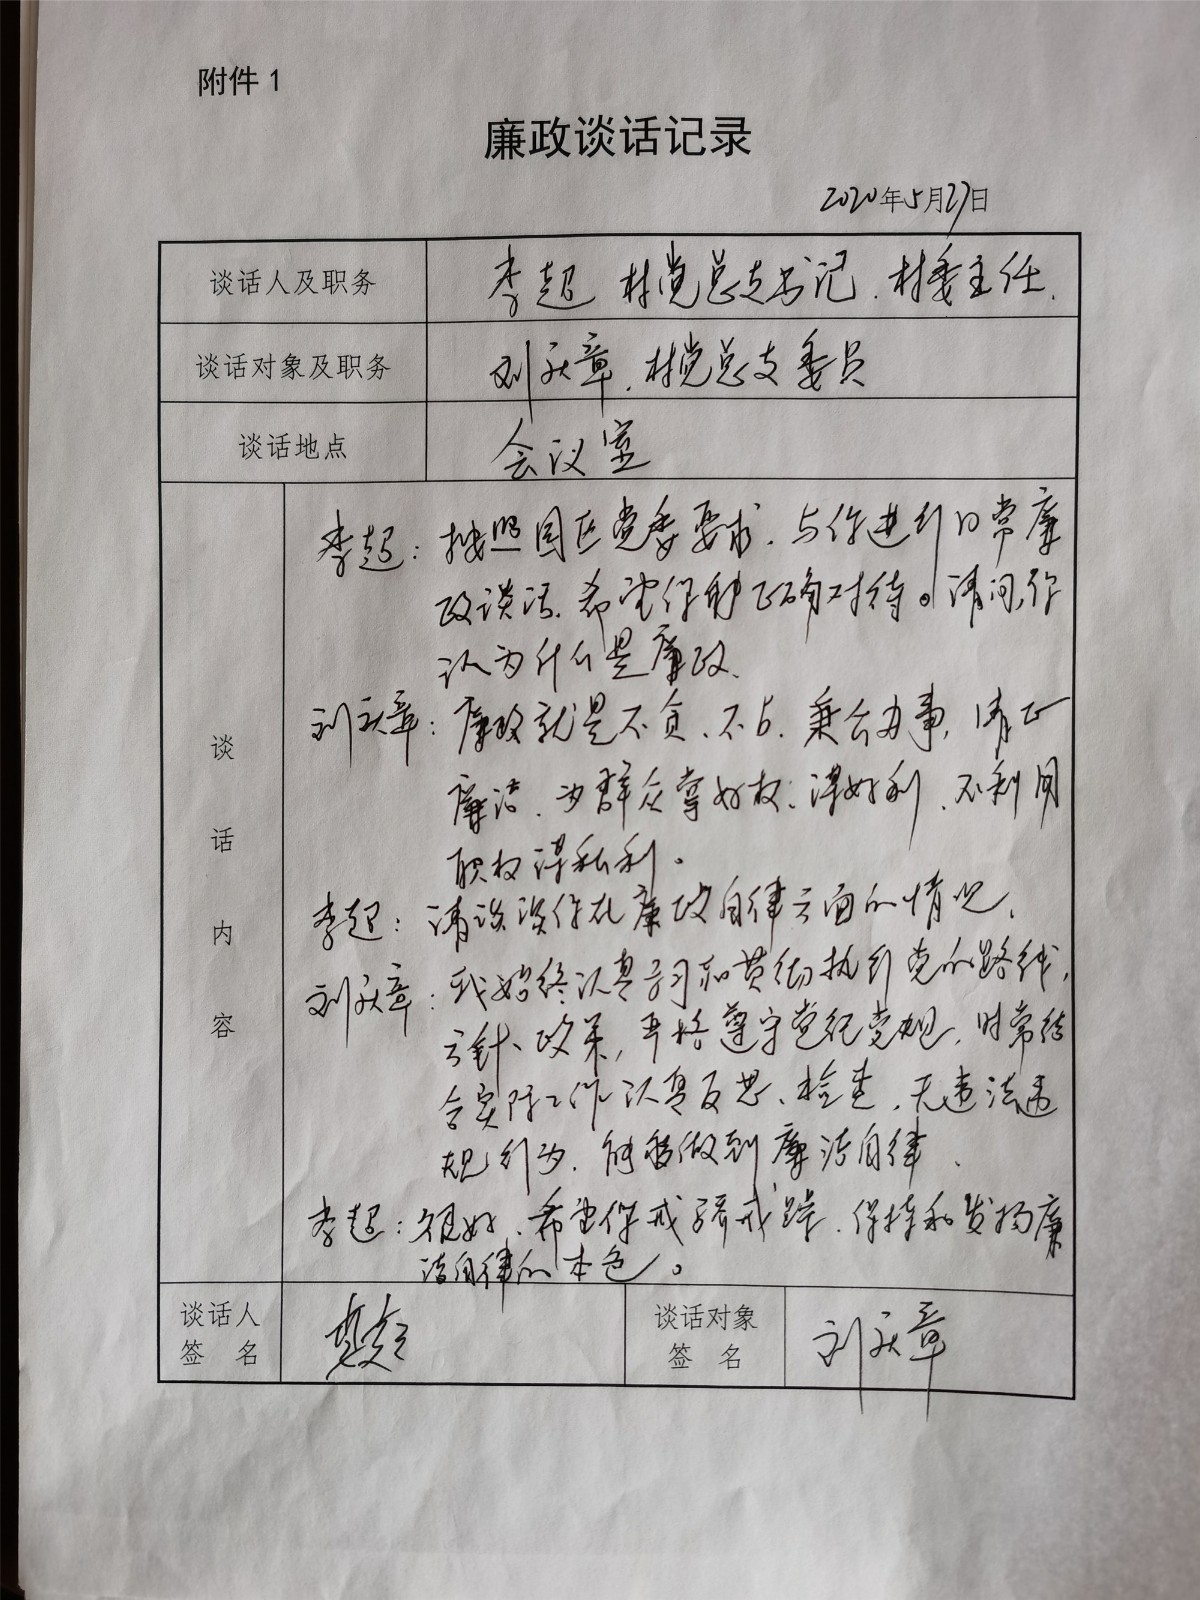 附件 1
廉政谈话记录
2020年5月27日
谈话人及职务
李超 村党总支书记、村委主任、
谈话对象及职务
刘庆章、村党总支委员
谈话地点
会议室
谈话内容
李超：按照园区党委要求、与你进行日常廉
政谈话、希望你能正确对待。请问,你
认为什么是廉政、
刘庆章：廉政就是不贪、不占、秉公办事，清正
廉洁、为群众掌好权、谋好利、不利用
职权谋私利。
李超：请谈谈你在廉政自律方面的情况、
刘庆章：我始终认真学习和贯彻执行党的路线，
方针、政策，严格遵守党纪党规，时常结
合实际工作认真反思、检查，无违法违
规行为、能够做到廉洁自律、
李超：很好、希望你戒骄戒躁、保持和发扬廉
洁自律的本色。
谈话人
签 名
谈话对象
签 名
刘庆章